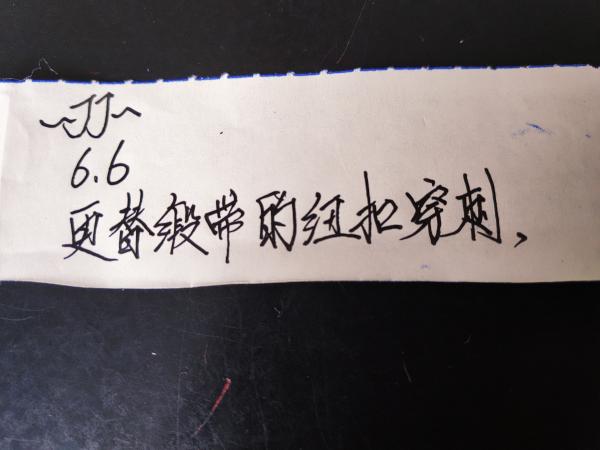 ~JJ~
6.6
更替缎带的纽扣穿刺、